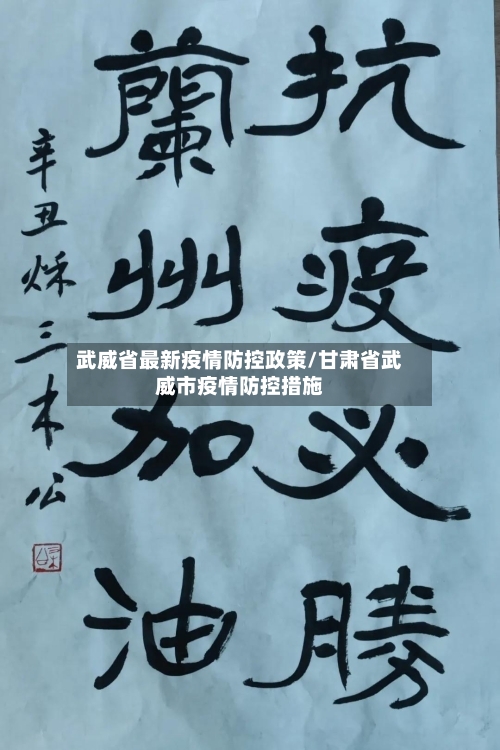 抗疫必勝
蘭州加油
辛丑秌三木公
武威省最新疫情防控政策/甘肃省武
威市疫情防控措施